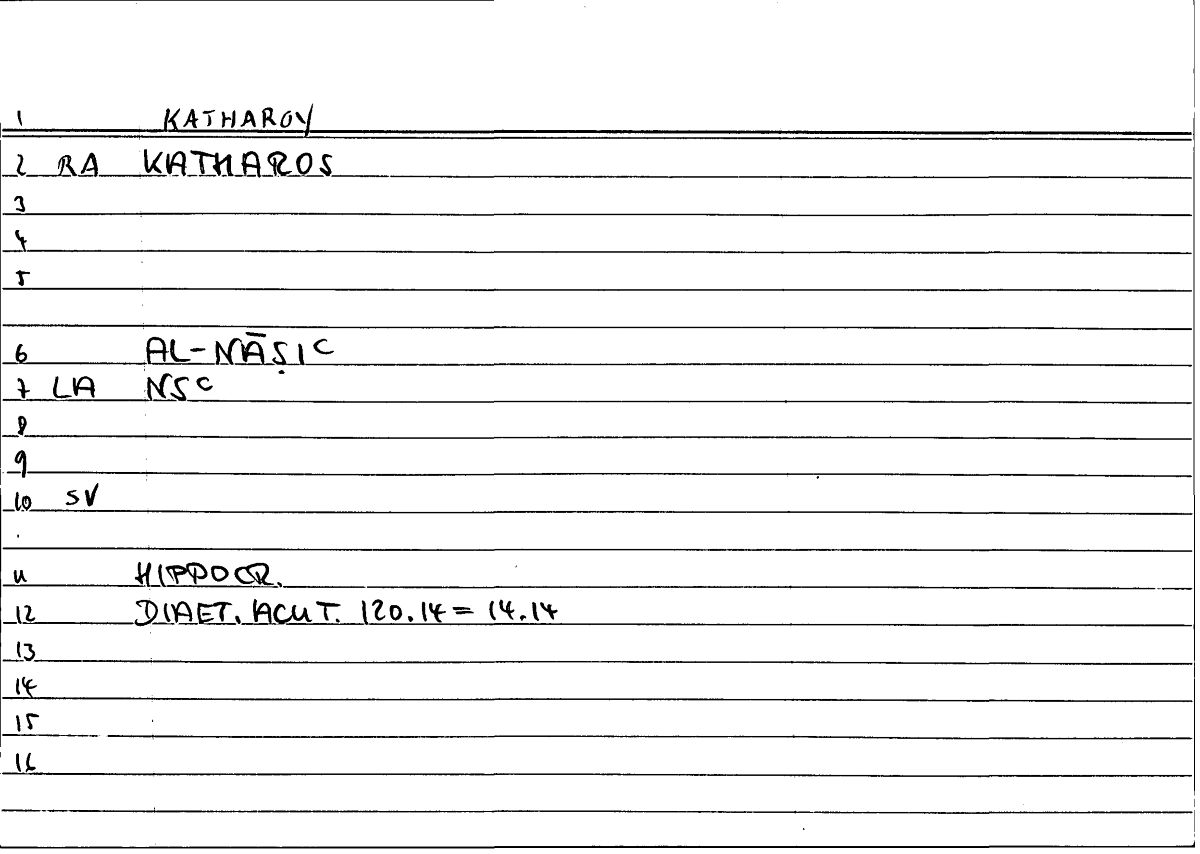 1 KATHAROV
2 RA KATHAROS
3
4
5
6 AL-NĀṢIC
7 LA NSC
8
9
10 SV
11 HIPPOCR.
12 DIAET. ACUT. 120.14 = 14.14
13
14
15
16